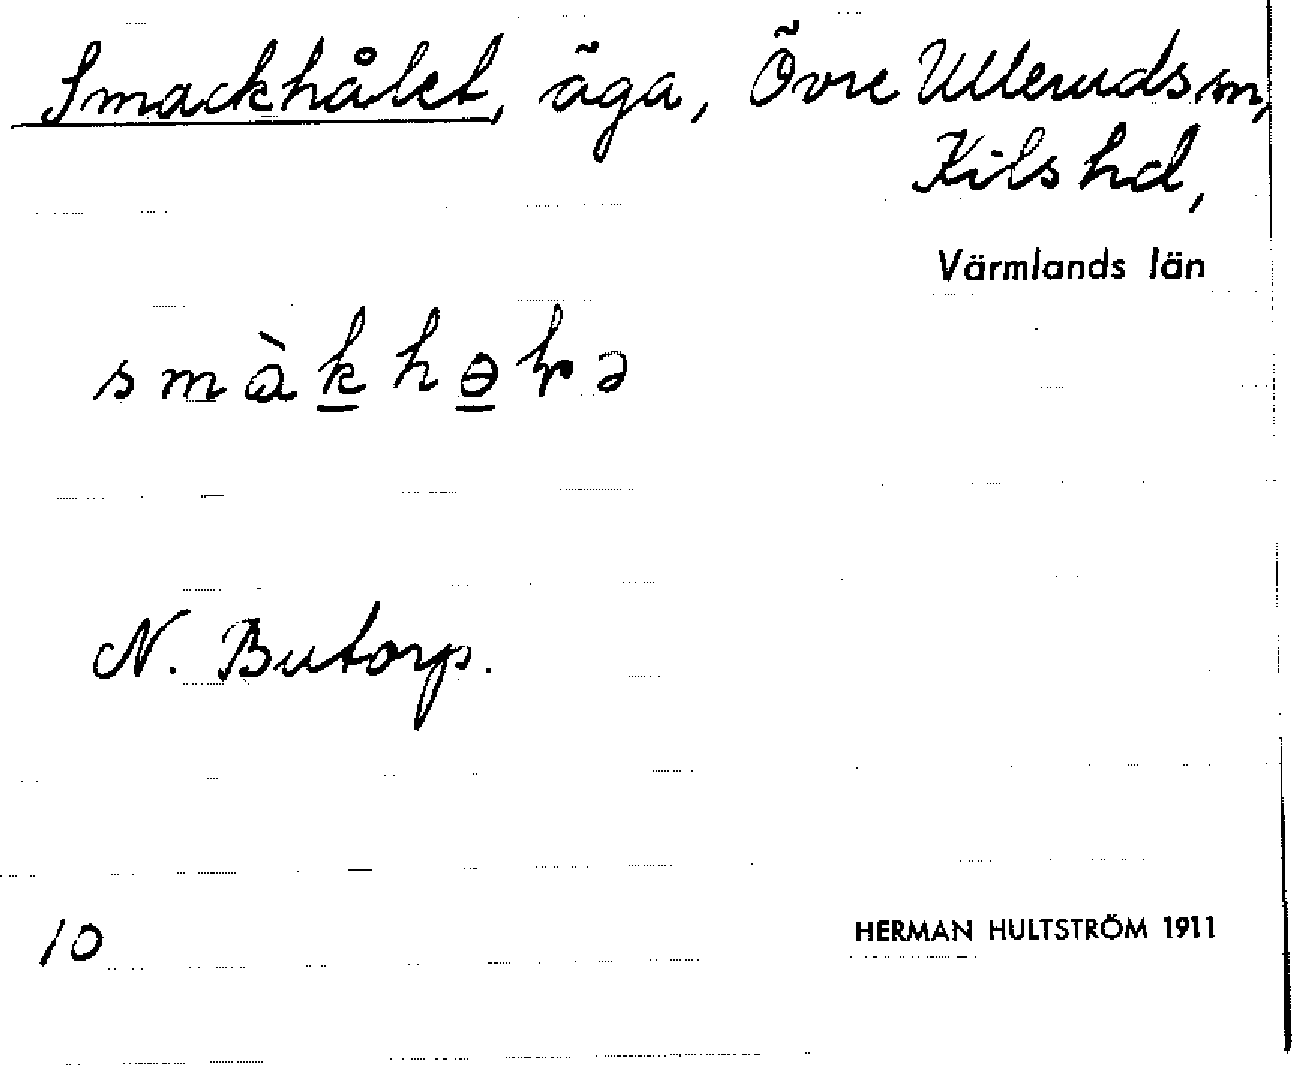 Smackhålet, äga, Övre Ulleruds sn,
Kils hd,
Värmlands län
smàkhɵɽə
N. Butorp.
10
HERMAN HULTSTRÖM 1911